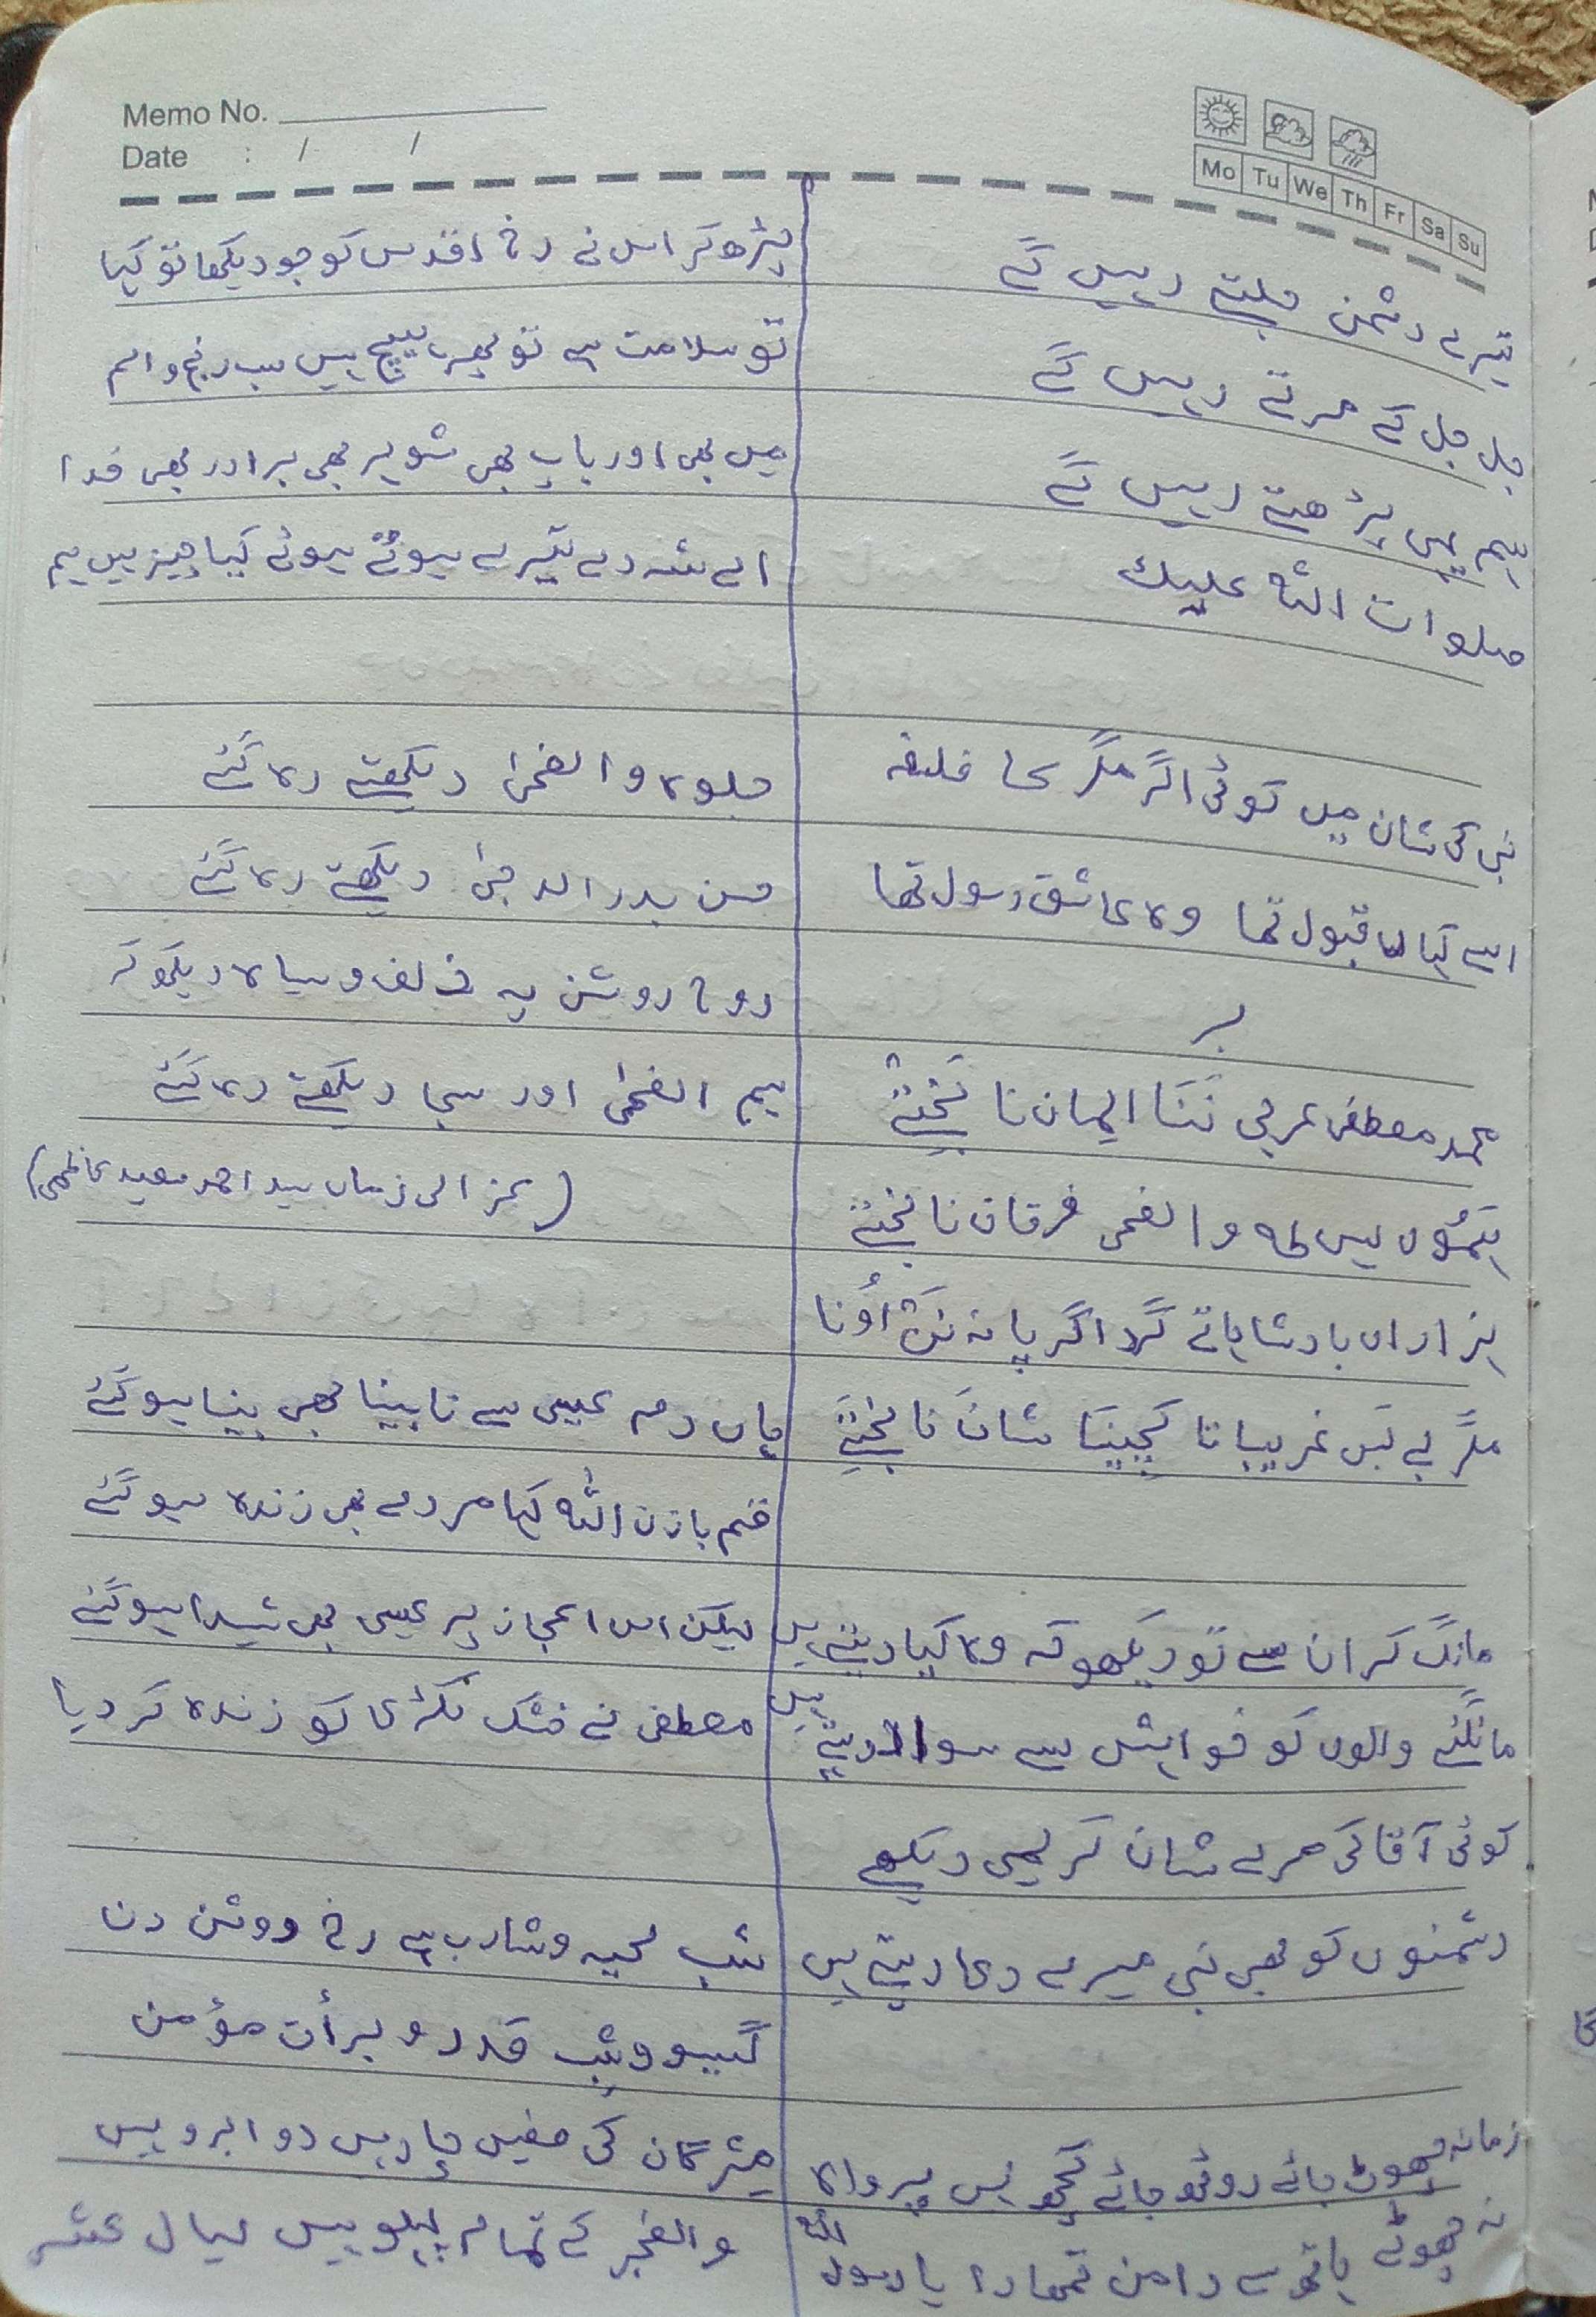 Memo No.
Date : / /
Mo Tu We Th Fr Sa Su
تیرے دشمن جلتے رہیں گے
جل جل کے مرتے رہیں گے
ہم بھی پڑھتے رہیں گے
صلوات اللہ علیک
نبی کی شان میں کوئی اگر مگر کا فلیفہ
اسے کہاں قبول تھا وہ عاشق رسول تھا
محمد مصطفی عربی نَنَا ایمان نا
یس طہ والضحی فرقان نا
ہزاراں بادشاہاتے گدا اگر پانہ
مگر بے بس غریباتا شانَ نا
مانگ کر ان سے تو دیکھو کہ وہ کیا دیتے ہیں
مانگنے والوں کو خواہش سے سوا دیتے ہیں
کوئی آقا کی مرے شان کریمی دیکھے
دشمنوں کو بھی نبی میرے دعا دیتے ہیں
زمانہ چھوٹ جائے روٹھ جائے کچھ نہیں پرواہ
نہ چھوٹے ہاتھ سے دامن تمھارا یا رسول اللہ
بڑھ کر اس نے رخ اقدس کو جو دیکھا تو کہا
تو سلامت ہے تو پھر ہیچ ہیں سب رنج و الم
میں بھی اور باپ بھی شوہر بھی برادر بھی فدا
اے شہ دے تیرے ہوتے ہوئے کیا چیز ہیں ہم
جلوہ والضحیٰ دیکھتے رہ گئے
حسن بدر الدجیٰ دیکھتے رہ گئے
روخ روشن پہ زلف و سیاہ دیکھو کہ
ہم الضحیٰ اور سجا دیکھتے رہ گئے
(غزالی زماں سید احمد سعید کاظمی)
ہاں دم عیسی سے نابینا بھی بینا ہو گئے
قم باذن اللہ کہا مردے بھی زندہ ہو گئے
لیکن اس اعجاز پر عیسی بھی شیدا ہو گئے
مصطفی نے خشک لکڑی کو زندہ کر دیا
شب لحیہ و شارب ہے رخ روشن دن
گیسو و شب قدر و برأت مؤمن
مژگان کی صفیں چار ہیں دو ابرو ہیں
والفجر کے تمام پہلو ہیں لیال عشر